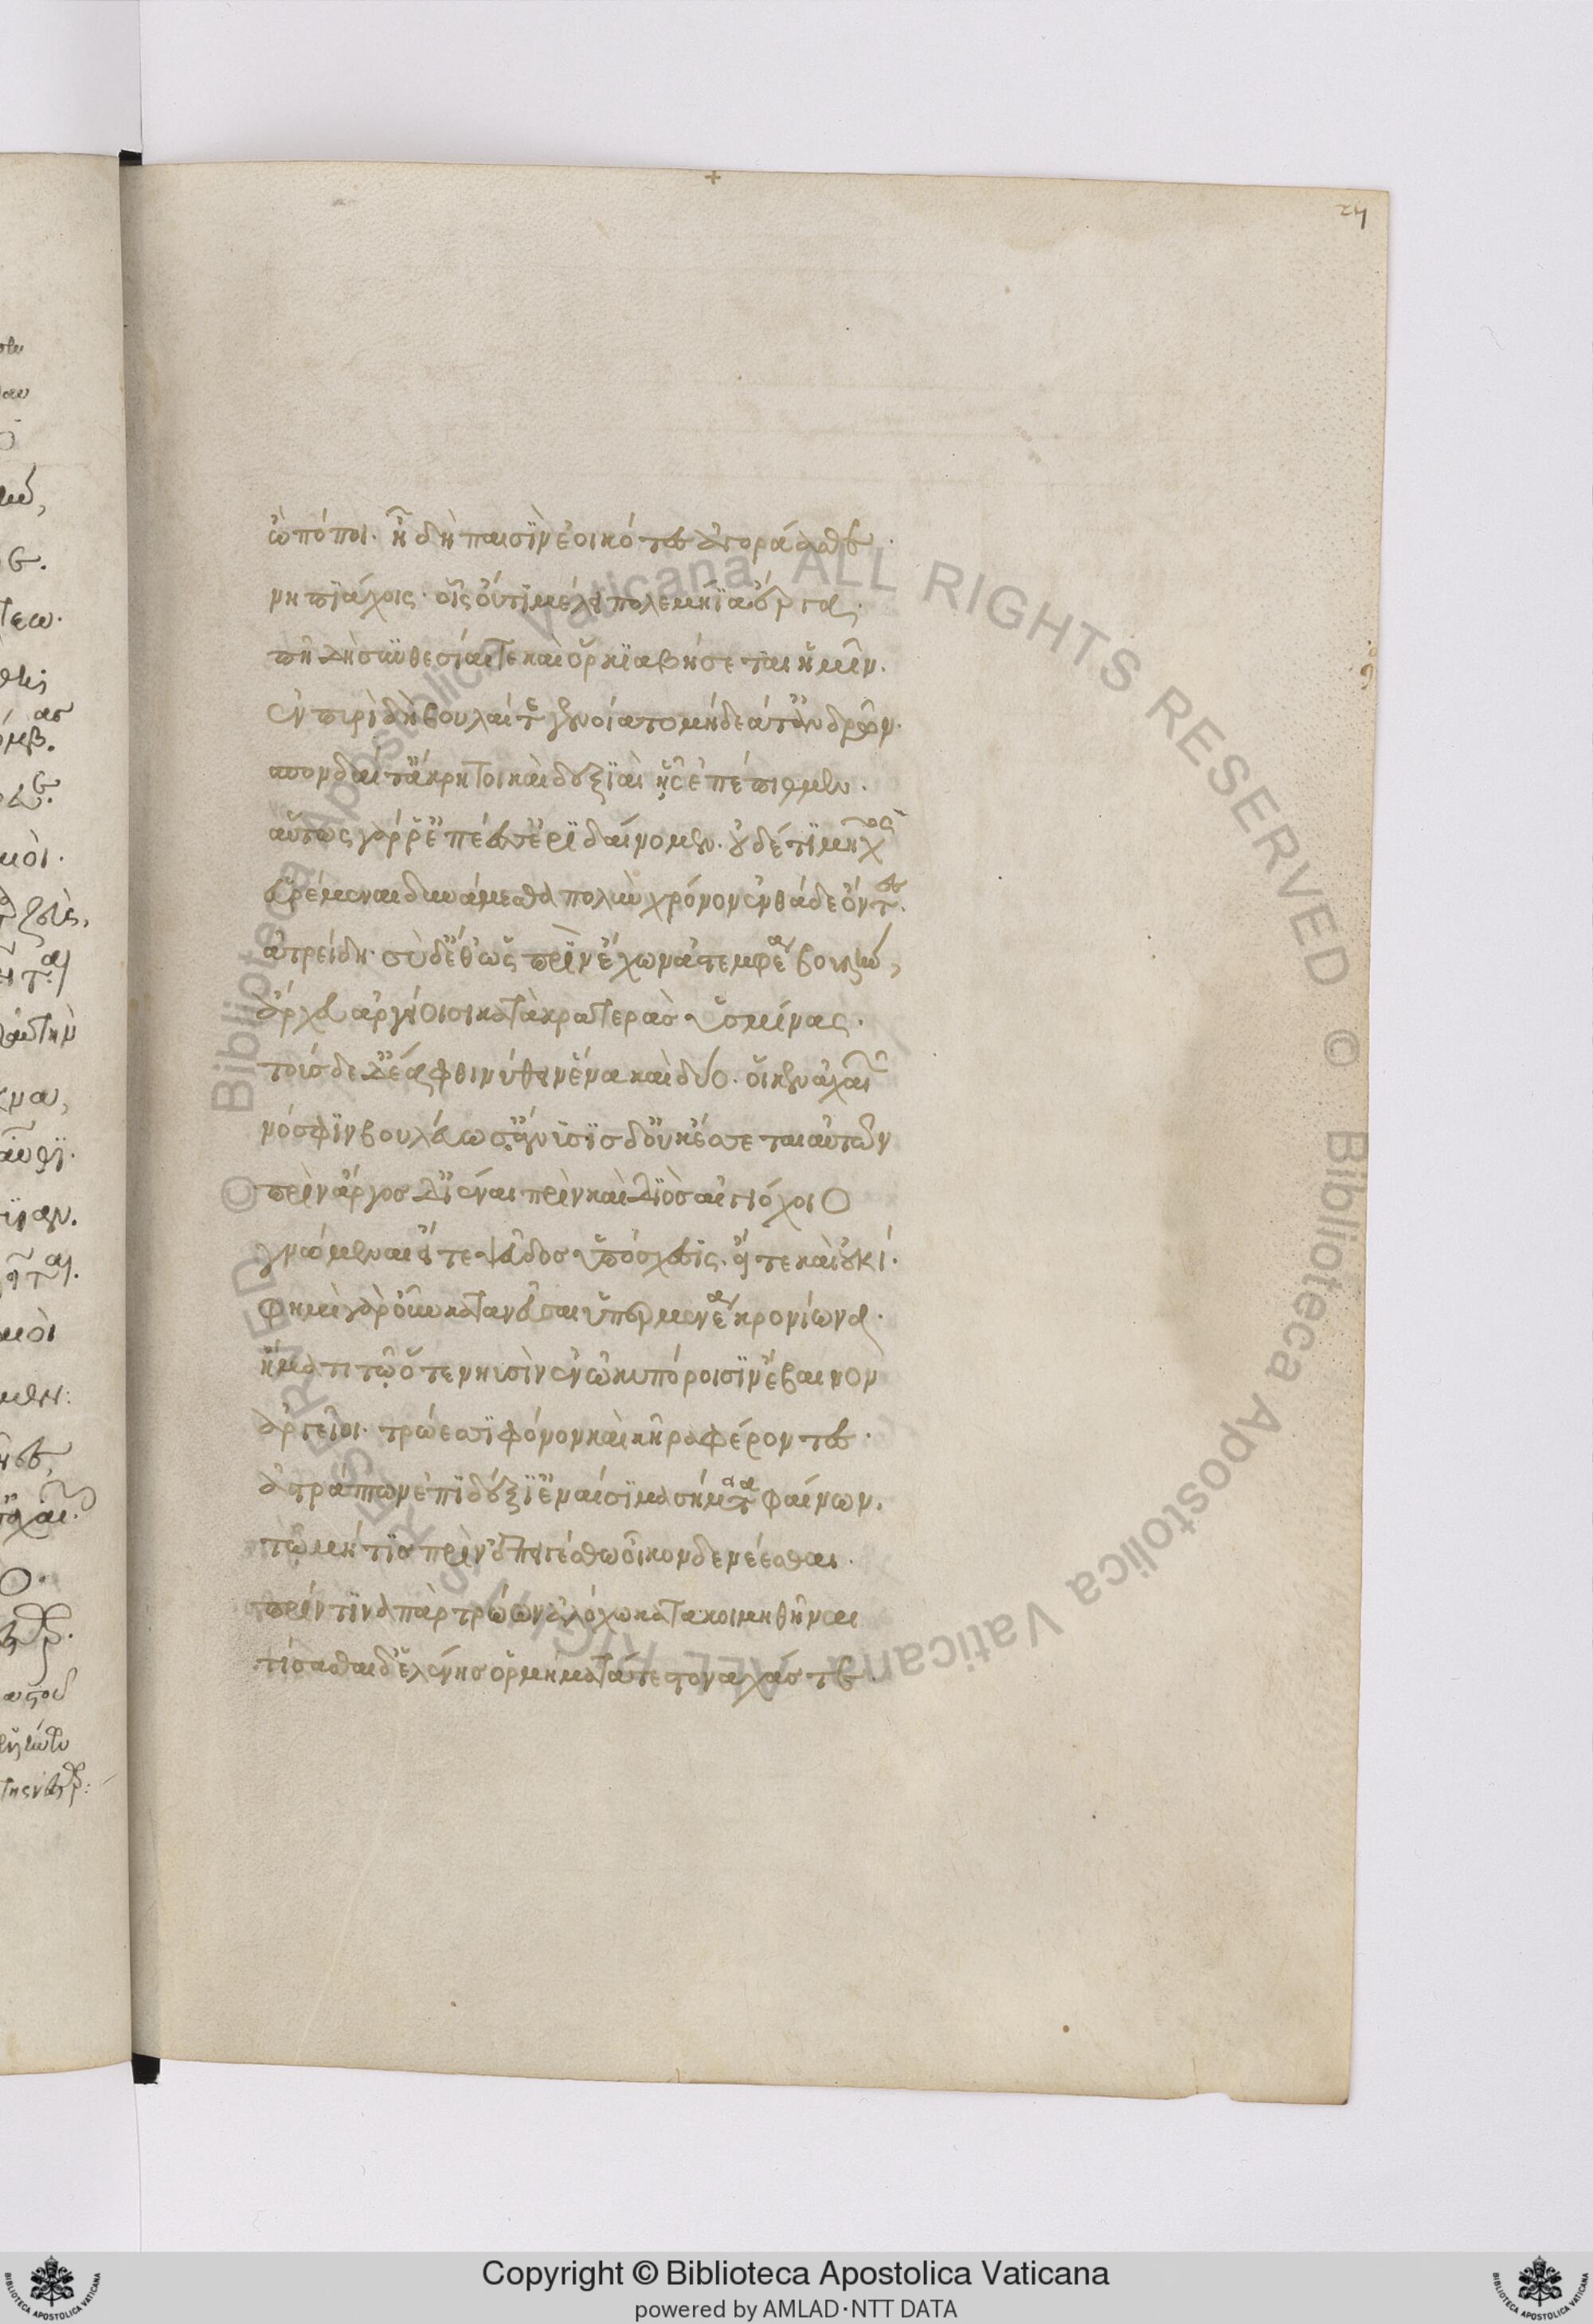 24
ὢ πόποι. ἦ δὴ παισὶν ἐοικότες ἀγοράασθε.
νηπιάχοις. οἷς οὔτι μέλει πολεμήϊα ἔργα.
πῆ δὴ συνθεσίαι τε καὶ ὅρκια βήσεται ἥμιν.
ἐν πυρὶ δὴ βουλαί τε γενοίατο μήδεά τ' ἀνδρῶν.
σπονδαί τ' ἄκρητοι καὶ δεξιαὶ ᾗς ἐπέπιθμεν.
αὔτως γάρ ῥ' ἐπέεσσ' ἐριδαίνομεν. οὐδέ τι μῆχος
εὑρέμεναι δυνάμεσθα πολὺν χρόνον ἐνθάδε ὄντες.
ἀτρείδη. σὺ δ' ἔθ' ὡς πρὶν ἔχων ἀστεμφέα βουλὴν,
ἄρχευ' ἀργείοισι κατὰ κρατερὰς ὑσμίνας.
τούσδε δ' ἔα φθινύθειν ἕνα καὶ δύο. οἵ κεν ἀχαιῶν
νόσφιν βουλεύωσ'. ἄνυσις δ' οὐκ ἔσσεται αὐτῶν
πρὶν ἄργοσδ' ἰέναι πρὶν καὶ διὸς αἰγιόχοιο
γνώμεναι εἴτε ψεῦδος ὑπόσχεσις. ἤ τε καὶ οὐκί.
φημὶ γὰρ οὖν κατανεῦσαι ὑπερμενέα κρονίωνα.
ἤματι τῷ ὅτε νηυσὶν ἐν ὠκυπόροισιν ἔβαινον
ἀργεῖοι. τρώεσσι φόνον καὶ κῆρα φέροντες.
ἀστράπτων ἐπιδέξι' ἐναίσιμα σήματα φαίνων.
τῷ μή τις πρὶν ἐπειγέσθω οἶκον δε νέεσθαι.
πρίν τινα πὰρ τρώων ἀλόχω κατακοιμηθῆναι
τίσασθαι δ' ἑλένης ὁρμήματά τε στοναχάς τε.
© Biblioteca Apostolica Vaticana ALL RIGHTS RESERVED © Biblioteca Apostolica Vaticana ALL RIGHTS RESERVED
Copyright © Biblioteca Apostolica Vaticana
powered by AMLAD·NTT DATA